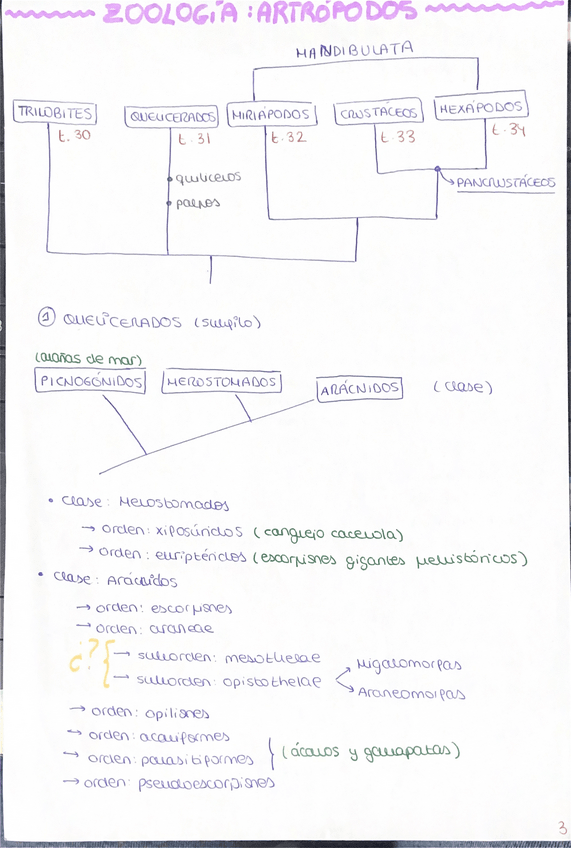 ZOOLOGÍA: ARTRÓPODOS
MANDIBULATA
TRILOBITES QUELICERADOS MIRIÁPODOS CRUSTÁCEOS HEXÁPODOS
t. 30 t. 31 t. 32 t. 33 t. 34
queliceros
palpos
PANCRUSTÁCEOS
① QUELICERADOS (subfilo)
(arañas de mar)
PICNOGÓNIDOS MEROSTOMADOS ARÁCNIDOS (clase)
• clase: Merostomados
→ orden: xiposúridos (cangrejo cacerola)
→ orden: euriptéridos (escorpiones gigantes prehistóricos)
• clase: Arácnidos
→ orden: escorpiones
→ orden: araneae
¿? { → suborden: mesothelae
→ suborden: opistothelae
Migalomorpas
Araneomorpas
→ orden: opiliones
→ orden: acariformes
→ orden: parasitiformes } (ácaros y garrapatas)
→ orden: pseudoescorpiones
3